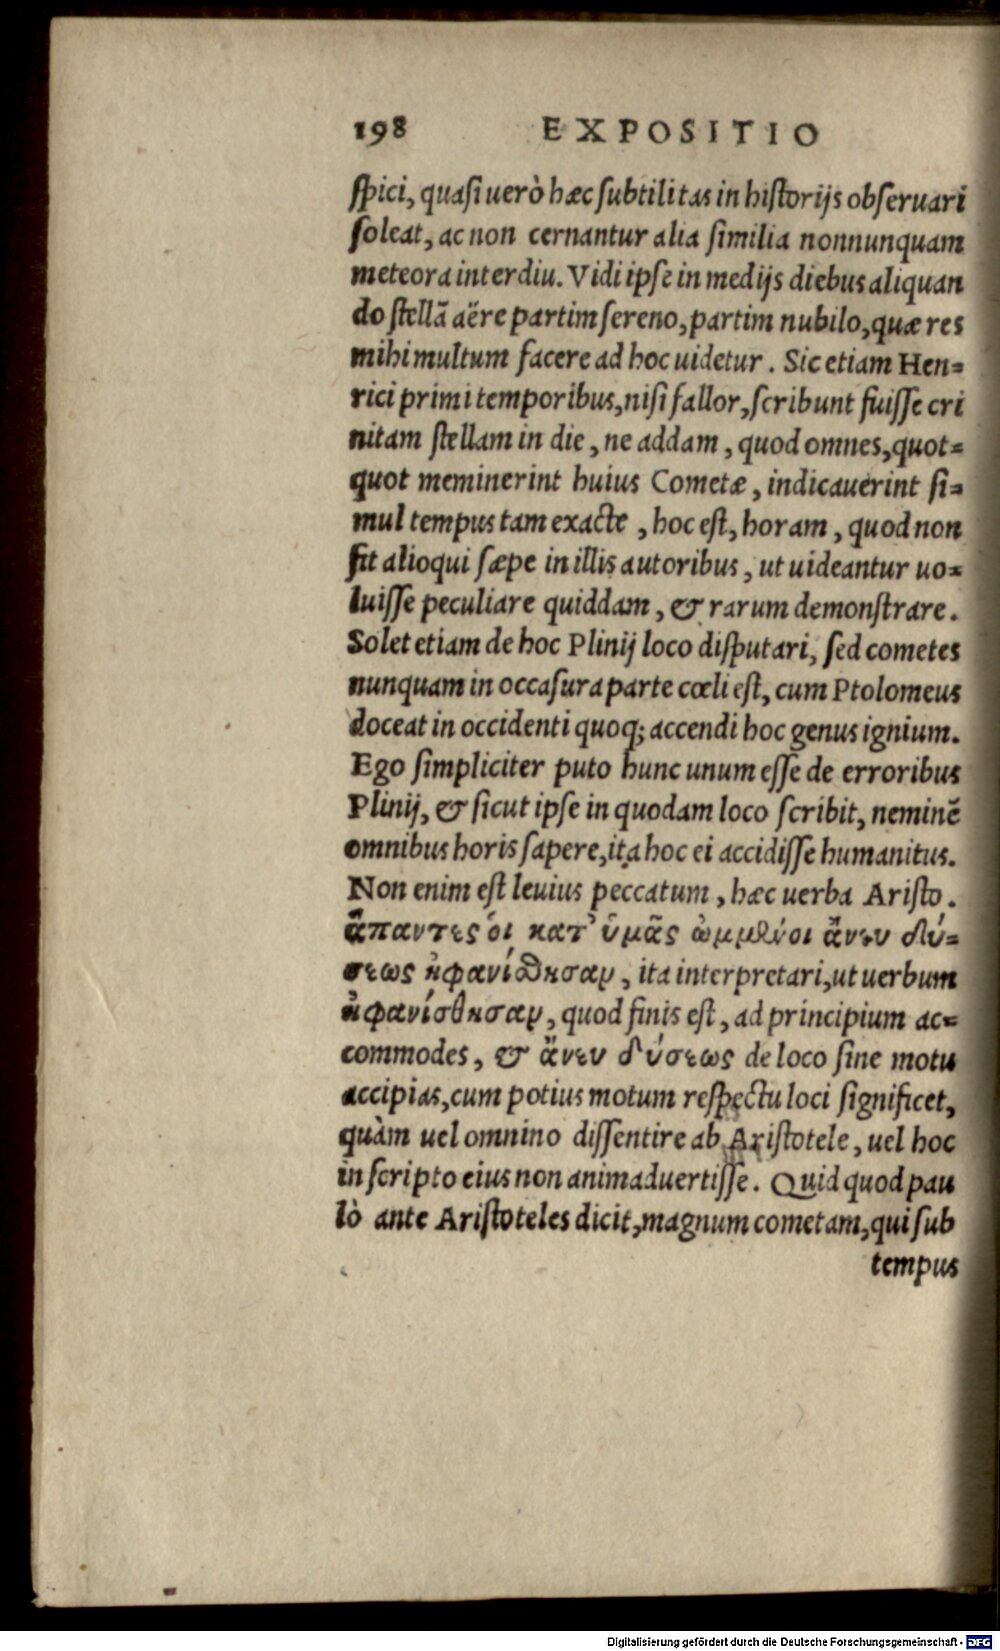 198 EXPOSITIO
spici, quasi uerò hæc subtilitas in historijs obseruari
soleat, ac non cernantur alia similia nonnunquam
meteora interdiu. Vidi ipse in medijs diebus aliquan
do stellã aëre partim sereno, partim nubilo, quæ res
mihi multum facere ad hoc uidetur. Sic etiam Hen=
rici primi temporibus, nisi fallor, scribunt fuisse cri
nitam stellam in die, ne addam, quod omnes, quot=
quot meminerint huius Cometæ, indicauerint si=
mul tempus tam exacte, hoc est, horam, quod non
fit alioqui sæpe in illis autoribus, ut uideantur uo=
luisse peculiare quiddam, & rarum demonstrare.
Solet etiam de hoc Plinij loco disputari, sed cometes
nunquam in occasura parte cœli est, cum Ptolomeus
doceat in occidenti quoq; accendi hoc genus ignium.
Ego simpliciter puto hunc unum esse de erroribus
Plinij, & sicut ipse in quodam loco scribit, neminẽ
omnibus horis sapere, ita hoc ei accidisse humanitus.
Non enim est leuius peccatum, hæc uerba Aristo.
ἅπαντες ὁι κατ' ὑμᾶς ὠμμένοι ἄνευ δύ=
σεως ἠφανίσθησαν, ita interpretari, ut uerbum
ἠφανίσθησαν, quod finis est, ad principium ac=
commodes, & ἄνευ δύσεως de loco sine motu
accipias, cum potius motum respectu loci significet,
quàm uel omnino dissentire ab Aristotele, uel hoc
in scripto eius non animaduertisse. Quid quod pau
lò ante Aristoteles dicit, magnum cometam, qui sub
tempus
Digitalisierung gefördert durch die Deutsche Forschungsgemeinschaft - DFG